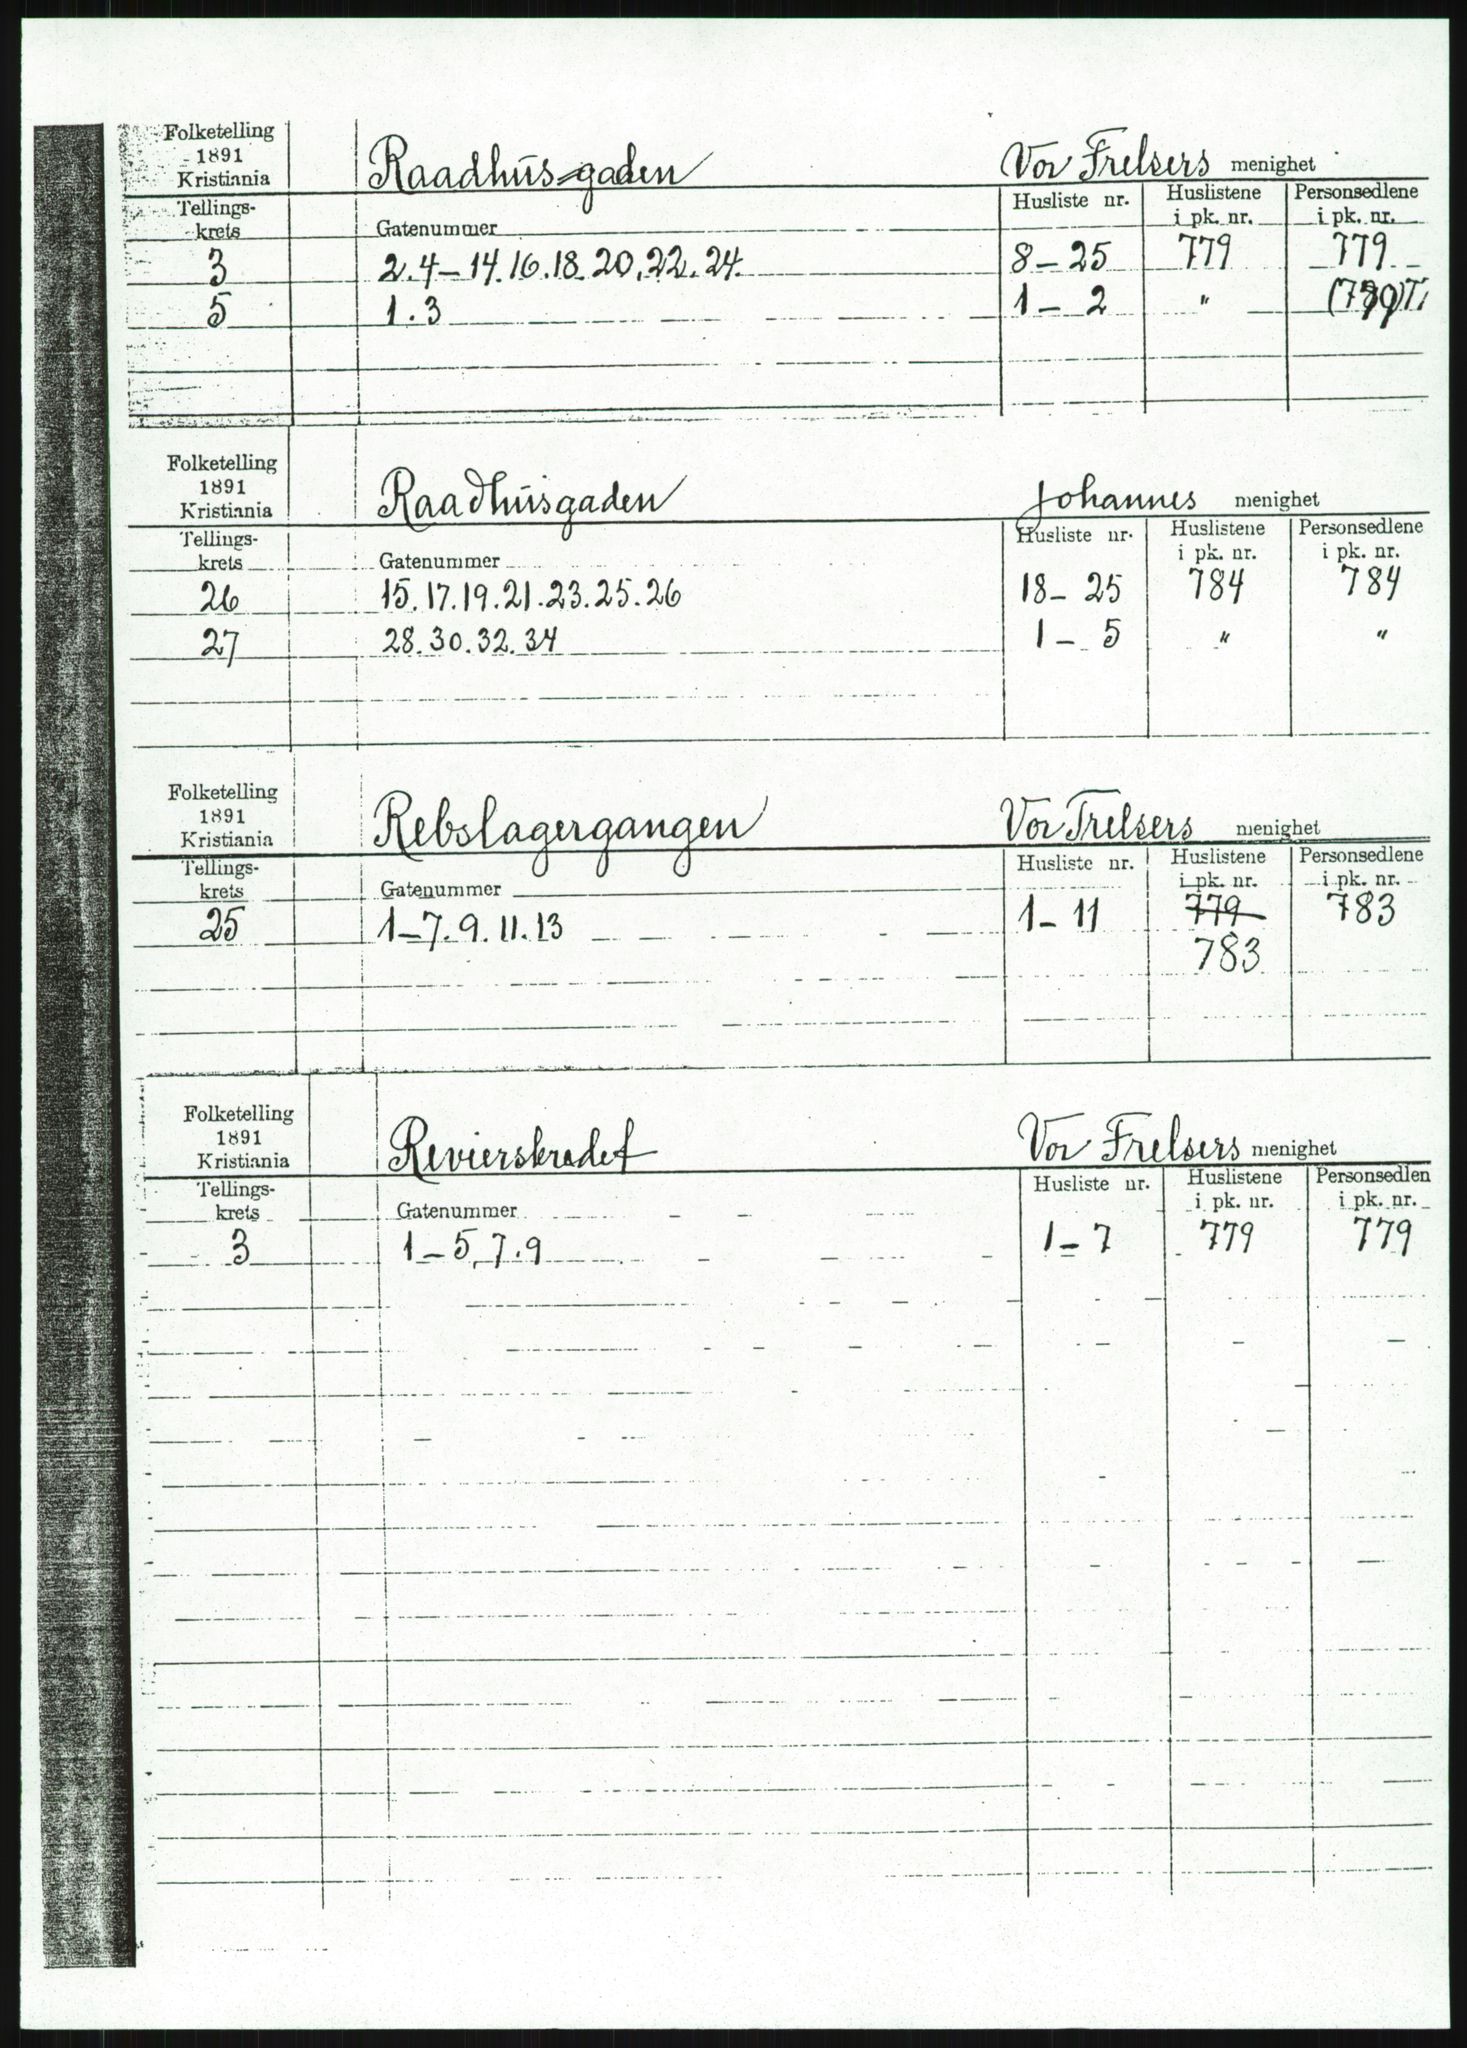 Folketelling
1891
Kristiania
Raadhusgaden
Vor Frelsers menighet
Tellings-
krets
Gatenummer
Husliste nr.
Huslistene
i pk. nr.
Personsedlene
i pk. nr.
3 2.4-14.16.18.20.22.24. 8-25 779 779
5 1.3 1-2 "
Folketelling
1891
Kristiania
Raadhusgaden
Johannes menighet
Tellings-
krets
Gatenummer
Husliste nr.
Huslistene
i pk. nr.
Personsedlene
i pk. nr.
26 15.17.19.21.23.25.26 18-25 784 784
27 28.30.32.34 1-5 " "
Folketelling
1891
Kristiania
Rebslagergangen
Vor Frelsers menighet
Tellings-
krets
Gatenummer
Husliste nr.
Huslistene
i pk. nr.
Personsedlene
i pk. nr.
25 1-7.9.11.13 1-11 779 783
783
Folketelling
1891
Kristiania
Revierstredet
Vor Frelsers menighet
Tellings-
krets
Gatenummer
Husliste nr.
Huslistene
i pk. nr.
Personsedlen
i pk. nr.
3 1-5.7.9 1-7 779 779